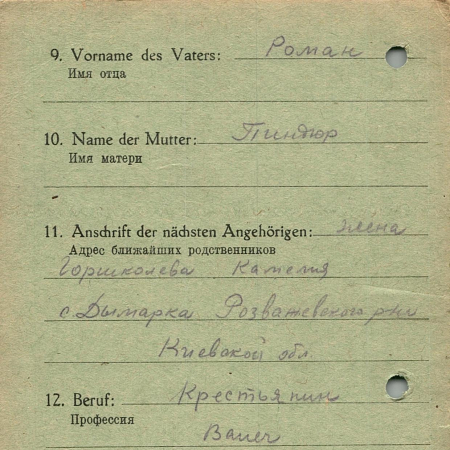 9. Vorname des Vaters: Роман
Имя отца
10. Name der Mutter: Пиндюр
Имя матери
11. Anschrift der nächsten Angehörigen: жена
Адрес ближайших родственников
Горшколева Камелия
с. Дымарка Розважевского р-ни
Киевской обл.
12. Beruf: Крестьянин
Профессия
Bauer